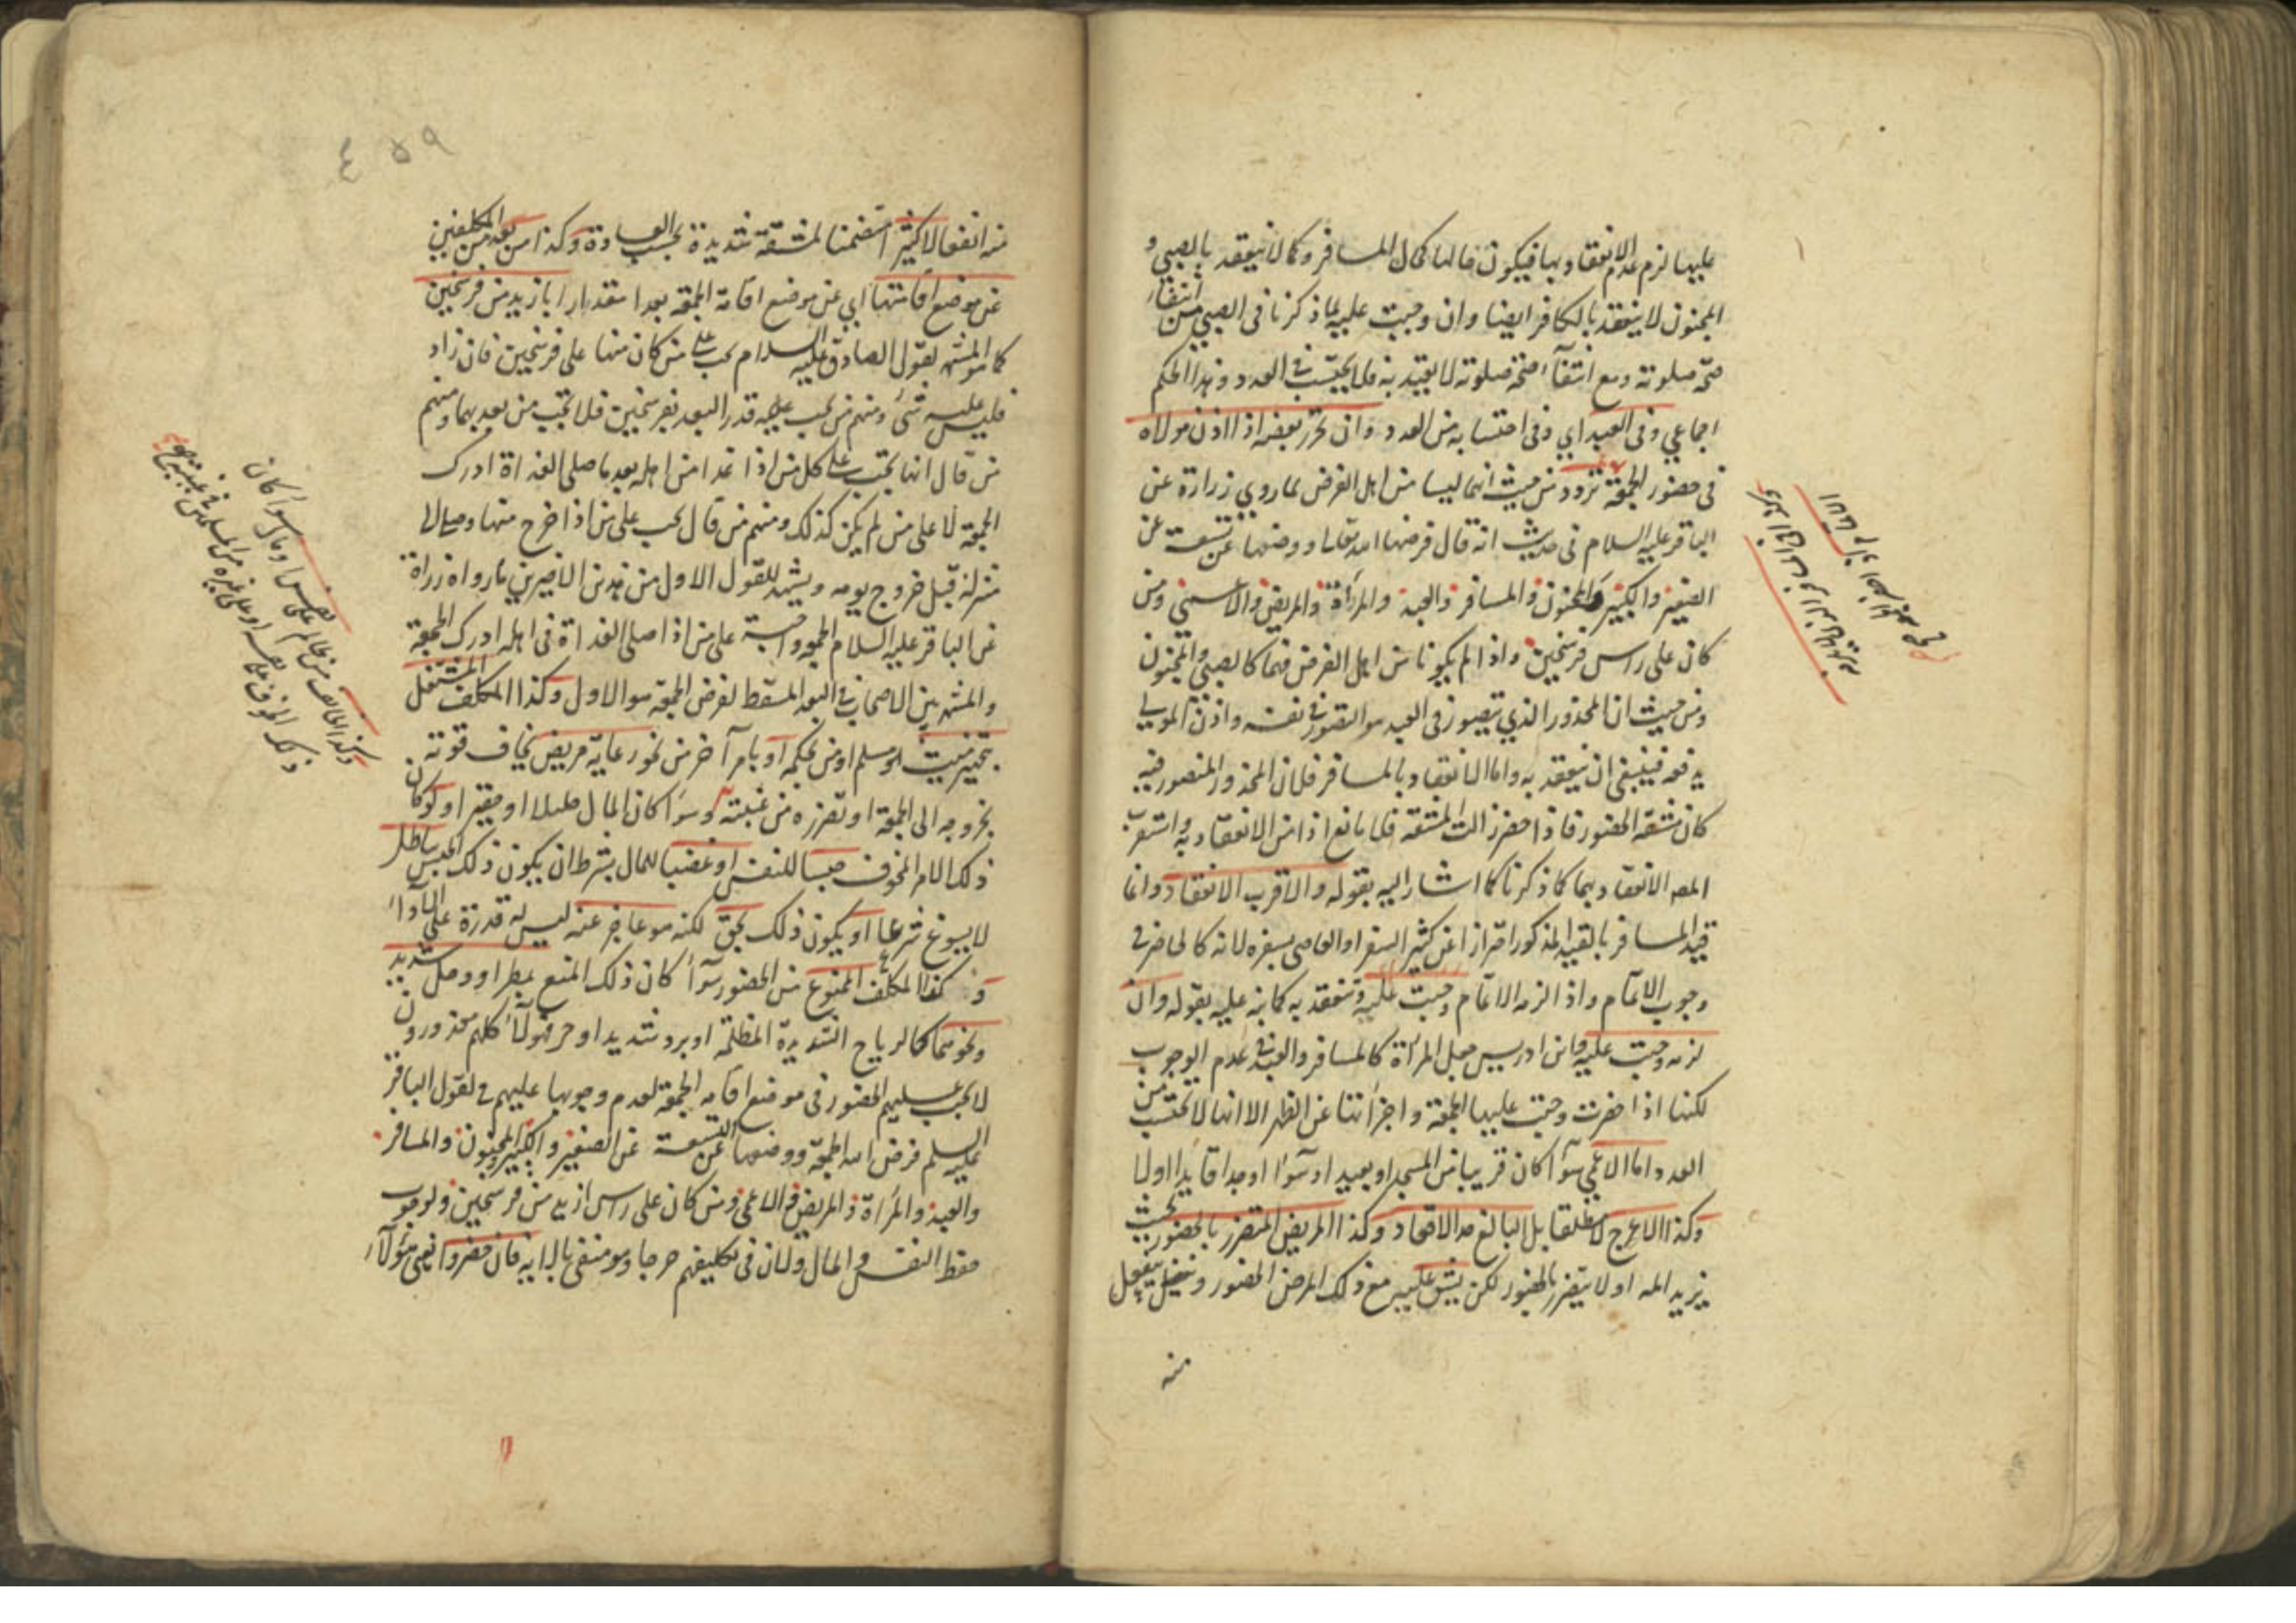 عليها لزم عدم الانعقاد بها فيكون حالها كحال المسافر وكما لا ينعقد بالصبي و
المجنون لا ينعقد بالكافر ايضا وان وجبت عليه لما ذكرنا في الصبي من انتفاء
صحة صلوته ومع انتفاء صحة صلوته لا يعتد به فلا يحتسب في العدد وهذا الحكم
اجماعي وفي العبد اي وفي احتسابه من العدد وان تحرر بعضه اذا اذن مولاه
في حضور الجمعة تردد من حيث انهما ليسا من اهل الفرض لما روي زرارة عن
الباقر عليه السلام في حديث انه قال فرضها الله تعالى ووضعها عن تسعة عن
الصغير والكبير والمجنون والمسافر والعبد والمرأة والمريض والاعمى ومن
كان على راس فرسخين واذا لم يكونا من اهل الفرض فهما كالصبي والمجنون
ومن حيث ان المحذور الذي يتصور في العبد هو التصرف في نفسه واذن المولى
يدفعه فينبغي ان ينعقد به واما الانعقاد بالمسافر فلان المحذور المتصور فيه
كان مشقة الحضور فاذا حضر زالت المشقة فلا مانع اذا من الانعقاد به واستقرب
المصـ الانعقاد بهما كما ذكرنا كما اشار اليه بقوله والاقرب الانعقاد وانما
قيد المسافر بالقيد المذكور احترازا عن كثير السفر او العاصي بسفره لانه كالحاضر في
وجوب الاتمام واذا لزمه الاتمام وجبت عليه وتنعقد به كما نبه عليه بقوله وان
لزمه وجبت عليه وابن ادريس جعل المرأة كالمسافر والعبد في عدم الوجوب
لكنها اذا حضرت وجبت عليها الجمعة واجزأتها عن الظهر الا انها لا تحتسب من
العدد واما الاعمى سواء كان قريبا من المسجد او بعيدا وسواء وجد قايدا او لا
وكذا الاعرج لا مطلقا بل البالغ حد الاقعاد وكذا المريض المتضرر بالحضور بحيث
يزيد المه او لا يتضرر بالحضور لكن يشق عليه مع ذلك المرض الحضور وينفعل
منه
منه انفعالا كثيرا متضمنا لمشقة شديدة بحسب العادة وكذا من بعد من المكلفين
عن موضع اقامتها اي عن موضع اقامة الجمعة بعدا مقداره بازيد من فرسخين
كما هو المشهـ لقول الصادق عليه السلام تجب على من كان منها على فرسخين فان زاد
فليس عليه شئ ومنهم من قدر البعد بفرسخين فلا تجب من بعد بهما ومنهم
من قال انها يجب على كل من اذا غدا من اهله بعد ما صلى الغداة ادرك
الجمعة لا على من لم يكن كذلك ومنهم من قال يجب على من اذا خرج منها وصل الى
منزله قبل خروج يومه ويشهد للقول الاول من هذين الاخيرين ما رواه زرارة
عن الباقر عليه السلام الجمعة واجبة على من اذا صلى الغداة في اهله ادرك الجمعة
والمشهـ بين الاصحاب في البعد المسقط لفرض الجمعة هو الاول وكذا المكلف المشتغل
بتجهيز ميت مسلم او من بحكمه او بامر آخر من نحو رعاية مريض يخاف فوته
بخروجه الى الجمعة او تضرره من غيبته وسواء كان المال جليلا او حقيرا ولو كان
ذلك الامر المخوف حبسا للنفس او غصبا للمال بشرط ان يكون ذلك الحبس بباطل
لا يسوغ شرعا او يكون ذلك بحق لكنه هو عاجز عنه ليس له قدرة على الاداء
و كذا المكلف الممنوع من الحضور سواء كان ذلك المنع بمطر او وحل شديد
ونحوهما كالرياح الشديدة المظلمة او برد شديد او حر فهولاء كلهم معذورون
لا يجب عليهم الحضور في موضع اقامة الجمعة لعدم وجوبها عليهم لقول الباقر
عليه السلم فرض الله الجمعة ووضعها عن تسعة عن الصغير والكبير والمجنون والمسافر
والعبد والمرأة والمريض والاعمى ومن كان على راس ازيد من فرسخين ولوجوب
حفظ النفس والمال ولان في تكليفهم حرجا وهو منفى بالاية فان حضروا يعني هؤلاء
وكذا الخائف من ظالم على نفس او مال سواء كان
ذلك الخوف على نفسه او على غيره من المسلمين
٤٥٩